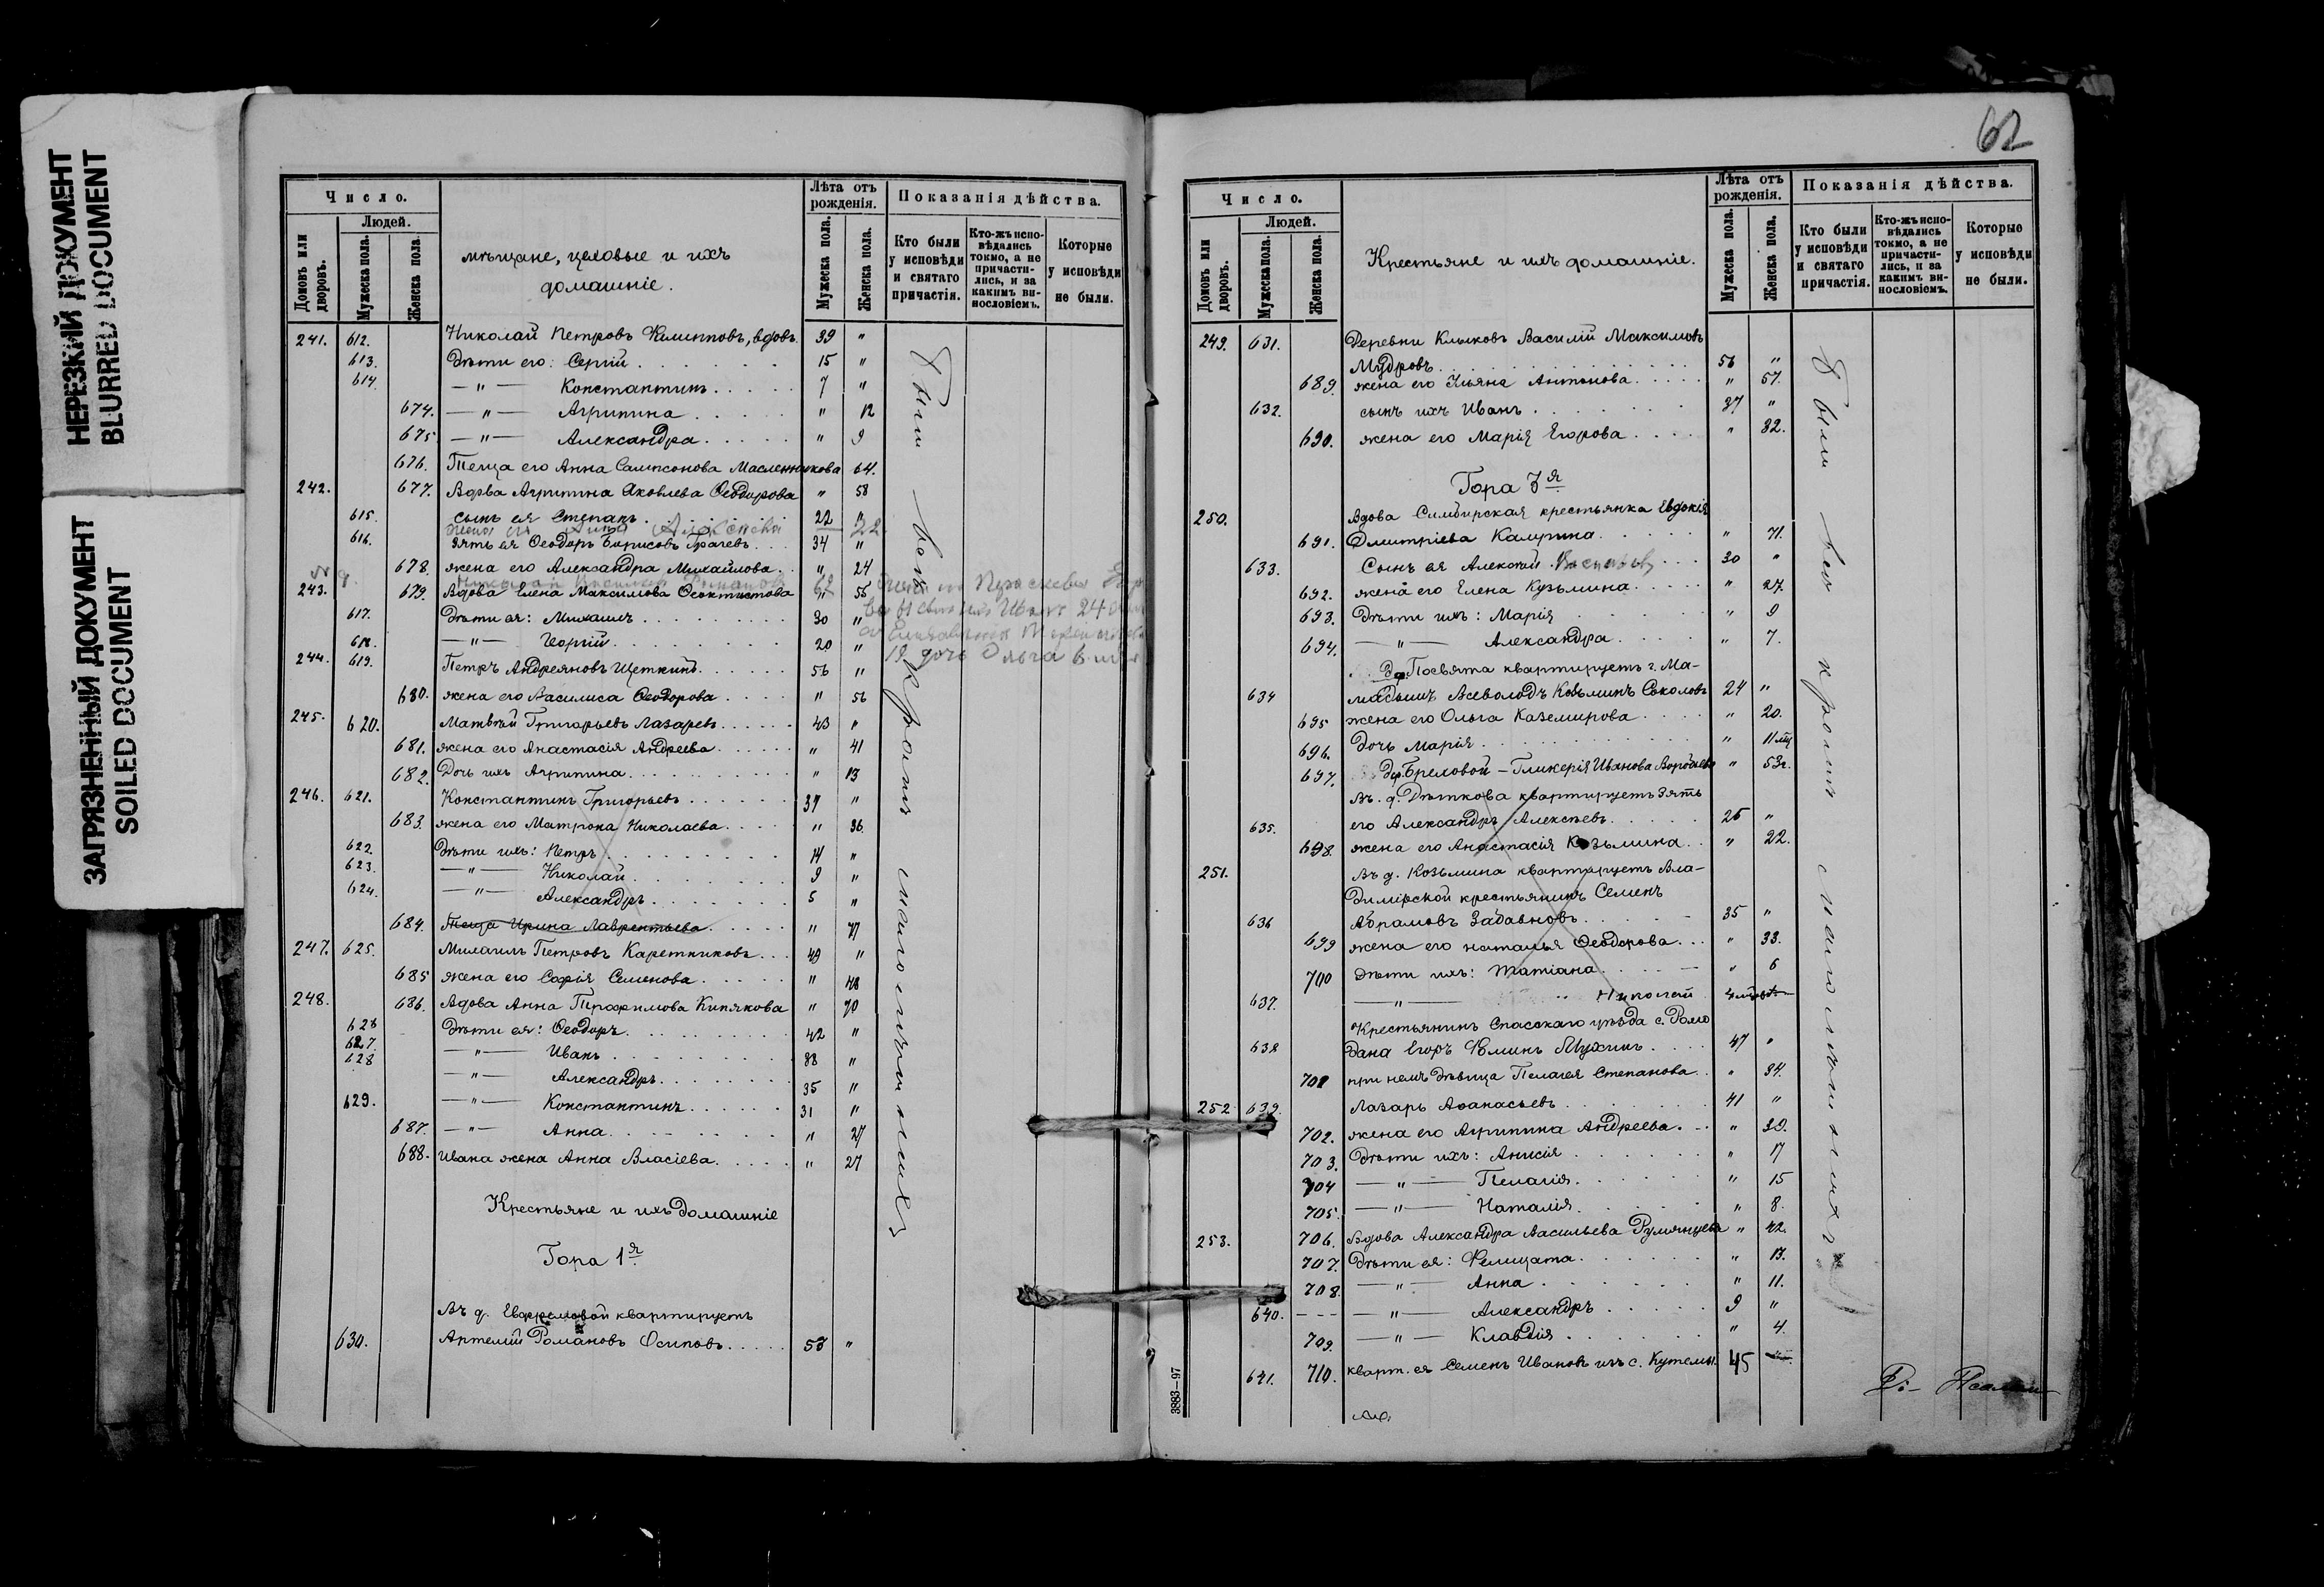 НЕРЕЗКИЙ ДОКУМЕНТ
BLURRED DOCUMENT
ЗАГРЯЗНЕННЫЙ ДОКУМЕНТ
SOILED DOCUMENT
Число.
Людей.
Домовъ или дворовъ.
Мужеска пола.
Женска пола.
мѣщане, цеховые и ихъ
домашніе.
Лѣта отъ рожденія.
Мужеска пола.
Женска пола.
Показанія дѣйства.
Кто были у исповѣди и святаго причастія.
Кто-жъ исповѣдались токмо, а не причастились, и за какимъ винословіемъ.
Которые у исповѣди не были.
241. 612. Николай Петровъ Филипповъ, вдовъ. 39 "
613. Дѣти его: Сергій 15 "
614. —"— Константинъ 7 "
674. —"— Агрипина " 12
675 —"— Александра " 9
676. Теща его Анна Сампсонова Масленникова 64.
242. 677. Вдова Агрипина Яковлева Ѳеодорова " 58
615. сынъ ея Степанъ 22 "
жена его Анна Алексѣева 22
616. зять ея Ѳеодоръ Борисовъ Грачевъ 34 "
678. жена его Александра Михайлова " 24
243. 679. Вдова Елена Максимова Ѳеоктистова " 56
617. Дѣти ея: Михаилъ 30 "
618. —"— Георгій 20 "
244. 619. Петръ Андреяновъ Щеткинъ 56 "
680. жена его Василиса Ѳеодорова " 56
245. 620. Матвѣй Григорьевъ Лазаревъ 43 "
681. жена его Анастасія Андреева " 41
682. Дочь ихъ Агрипина " 13
246. 621. Константинъ Григорьевъ 37 "
683. жена его Матрона Николаева " 36
622. Дѣти ихъ: Петръ 14 "
623. —"— Николай 9 "
624. —"— Александръ 5 "
684. Теща Ирина Лаврентьева " 77
247. 625. Михаилъ Петровъ Каретниковъ 49 "
685 жена его Софія Семенова " 48
248. 686. Вдова Анна Трофимова Кипякова " 70
626 Дѣти ея: Ѳеодоръ 42 "
627. —"— Иванъ 38 "
628 —"— Александръ 35 "
629. —"— Константинъ 31 "
687. —"— Анна " 27
688. Ивана жена Анна Власіева " 27
Крестьяне и ихъ домашніе
Гора 1я
Въ д. Евфремовой квартируетъ
630. Артемій Романовъ Осиповъ 53 "
Были всѣ кромѣ малолѣтнихъ
62
Число.
Людей.
Домовъ или дворовъ.
Мужеска пола.
Женска пола.
Крестьяне и ихъ домашніе.
Лѣта отъ рожденія.
Мужеска пола.
Женска пола.
Показанія дѣйства.
Кто были у исповѣди и святаго причастія.
Кто-жъ исповѣдались токмо, а не причастились, и за какимъ винословіемъ.
Которые у исповѣди не были.
249. 631. Деревни Клыковъ Василій Максимовъ
Мудровъ 56 "
689. жена его Ульяна Антонова " 57.
632. сынъ ихъ Иванъ 37 "
690. жена его Марія Егорова " 32.
Гора 3я
250. Вдова Симбирская крестьянка Евдокія
691. Димитріева Калугина " 71.
633. Сынъ ея Алексѣй 30 "
692. жена его Елена Кузьмина " 27.
693. Дѣти ихъ: Марія " 9
694. —"— Александра " 7.
634 Всеволодъ Козьминъ Соколовъ 24 "
695 жена его Ольга Каземирова " 20.
696. Дочь Марія " 11 мц
697. Гликерія Иванова Воробьева " 53г.
Въ д. Дѣткова квартируетъ зять
635. его Александръ Алексѣевъ 25 "
698. жена его Анастасія Козьмина " 22.
251. Въ д. Козьмина квартируетъ Вла-
димірской крестьянинъ Семенъ
636 Абрамовъ Забавновъ 35 "
699 жена его Наталья Ѳеодорова " 33.
700 Дѣти ихъ: Татіана " 6
637. —"— Николай
Крестьянинъ Спасскаго уѣзда с. Ромо
638 дана Егоръ Ѳоминъ Мухинъ 47 "
701 при немъ дѣвица Пелагея Степанова " 34.
252 639. Лазарь Аѳанасьевъ 41 "
702. жена его Агрипина Андреева " 39.
703. Дѣти ихъ: Анисія " 17
704 —"— Пелагія " 15
705. —"— Наталія " 8.
253. 706. Вдова Александра Васильева Румянцева " 42.
707. Дѣти ея: Фелицата " 13.
708. —"— Анна " 11.
640. —"— Александръ 9 "
709. —"— Клавдія " 4.
641. 710. кварт. ея Семенъ Ивановъ изъ с. 45
Были всѣ кромѣ малолѣтнихъ
3883—97